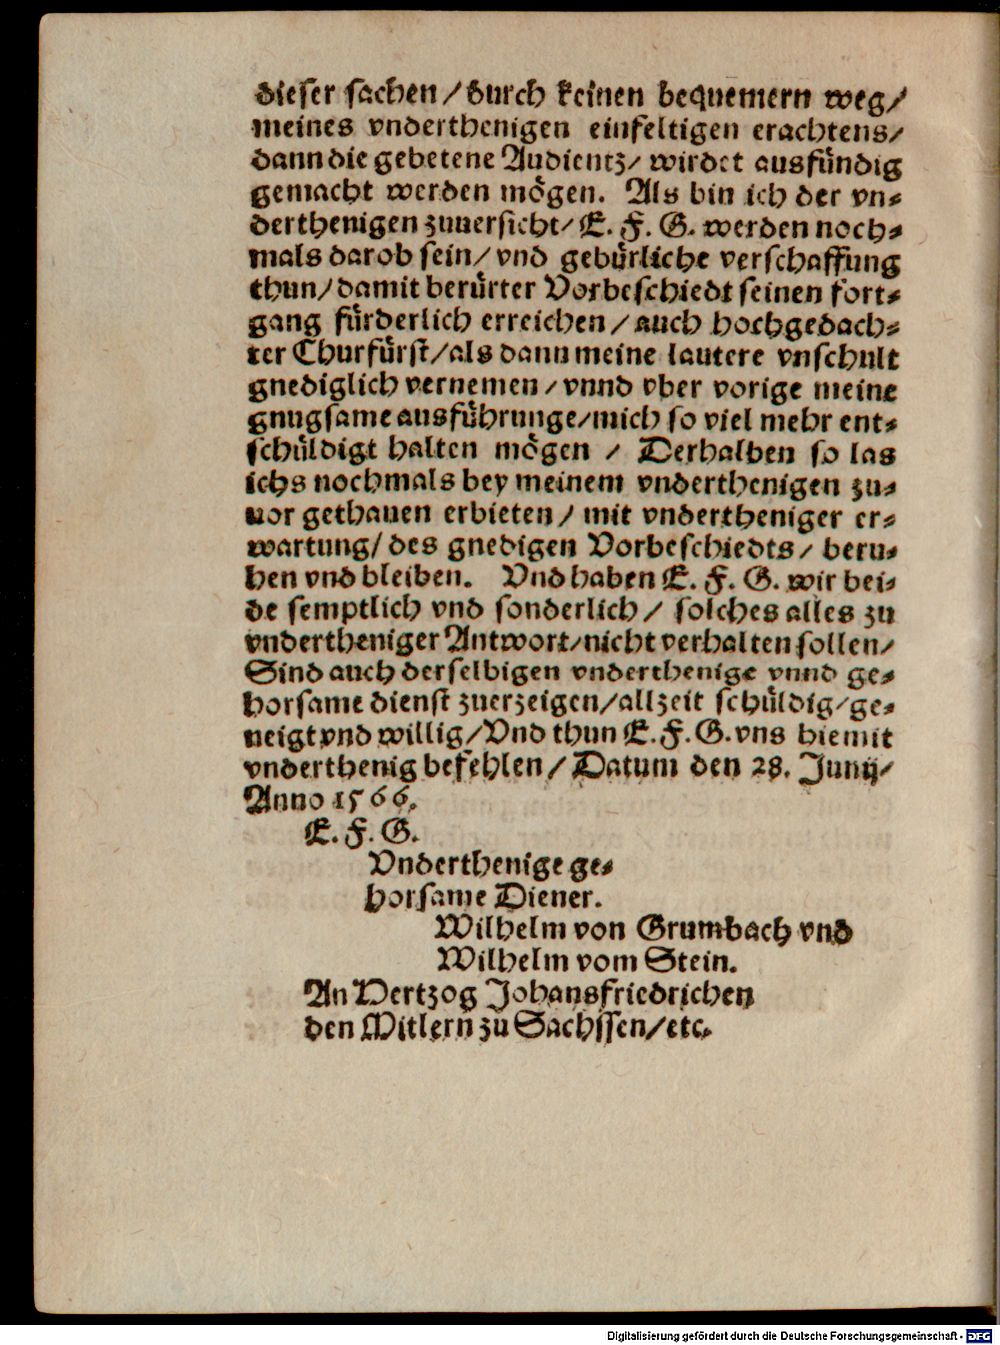 dieser sachen / durch keinen bequemern weg /
meines vnderthenigen einfeltigen erachtens /
dann die gebetene Audientz / wirdet ausfündig
gemacht werden mögen. Als bin ich der vn-
derthenigen zuuersicht / E. F. G. werden noch-
mals darob sein / vnd gebürliche verschaffung
thun / damit berürter Vorbeschiedt seinen fort-
gang fürderlich erreichen / auch hochgedach-
ter Churfürst / als dann meine lautere vnschult
gnediglich vernemen / vnnd vber vorige meine
gnugsame ausführunge / mich so viel mehr ent-
schüldigt halten mögen / Derhalben so las
ichs nochmals bey meinem vnderthenigen zu-
uor gethanen erbieten / mit vndertheniger er-
wartung / des gnedigen Vorbeschiedts / beru-
hen vnd bleiben. Vnd haben E. F. G. wir bei-
de semptlich vnd sonderlich / solches alles zu
vndertheniger Antwort / nicht verhalten sollen /
Sind auch derselbigen vnderthenige vnnd ge-
horsame dienst zuerzeigen / allzeit schüldig / ge-
neigt vnd willig / Vnd thun E. F. G. vns hiemit
vnderthenig befehlen / Datum den 28. Junij /
Anno 1566.
E. F. G.
Vnderthenige ge-
horsame Diener.
Wilhelm von Grumbach vnd
Wilhelm vom Stein.
An Hertzog Johansfriedrichen
den Mitlern zu Sachssen / etc.
Digitalisierung gefördert durch die Deutsche Forschungsgemeinschaft - DFG